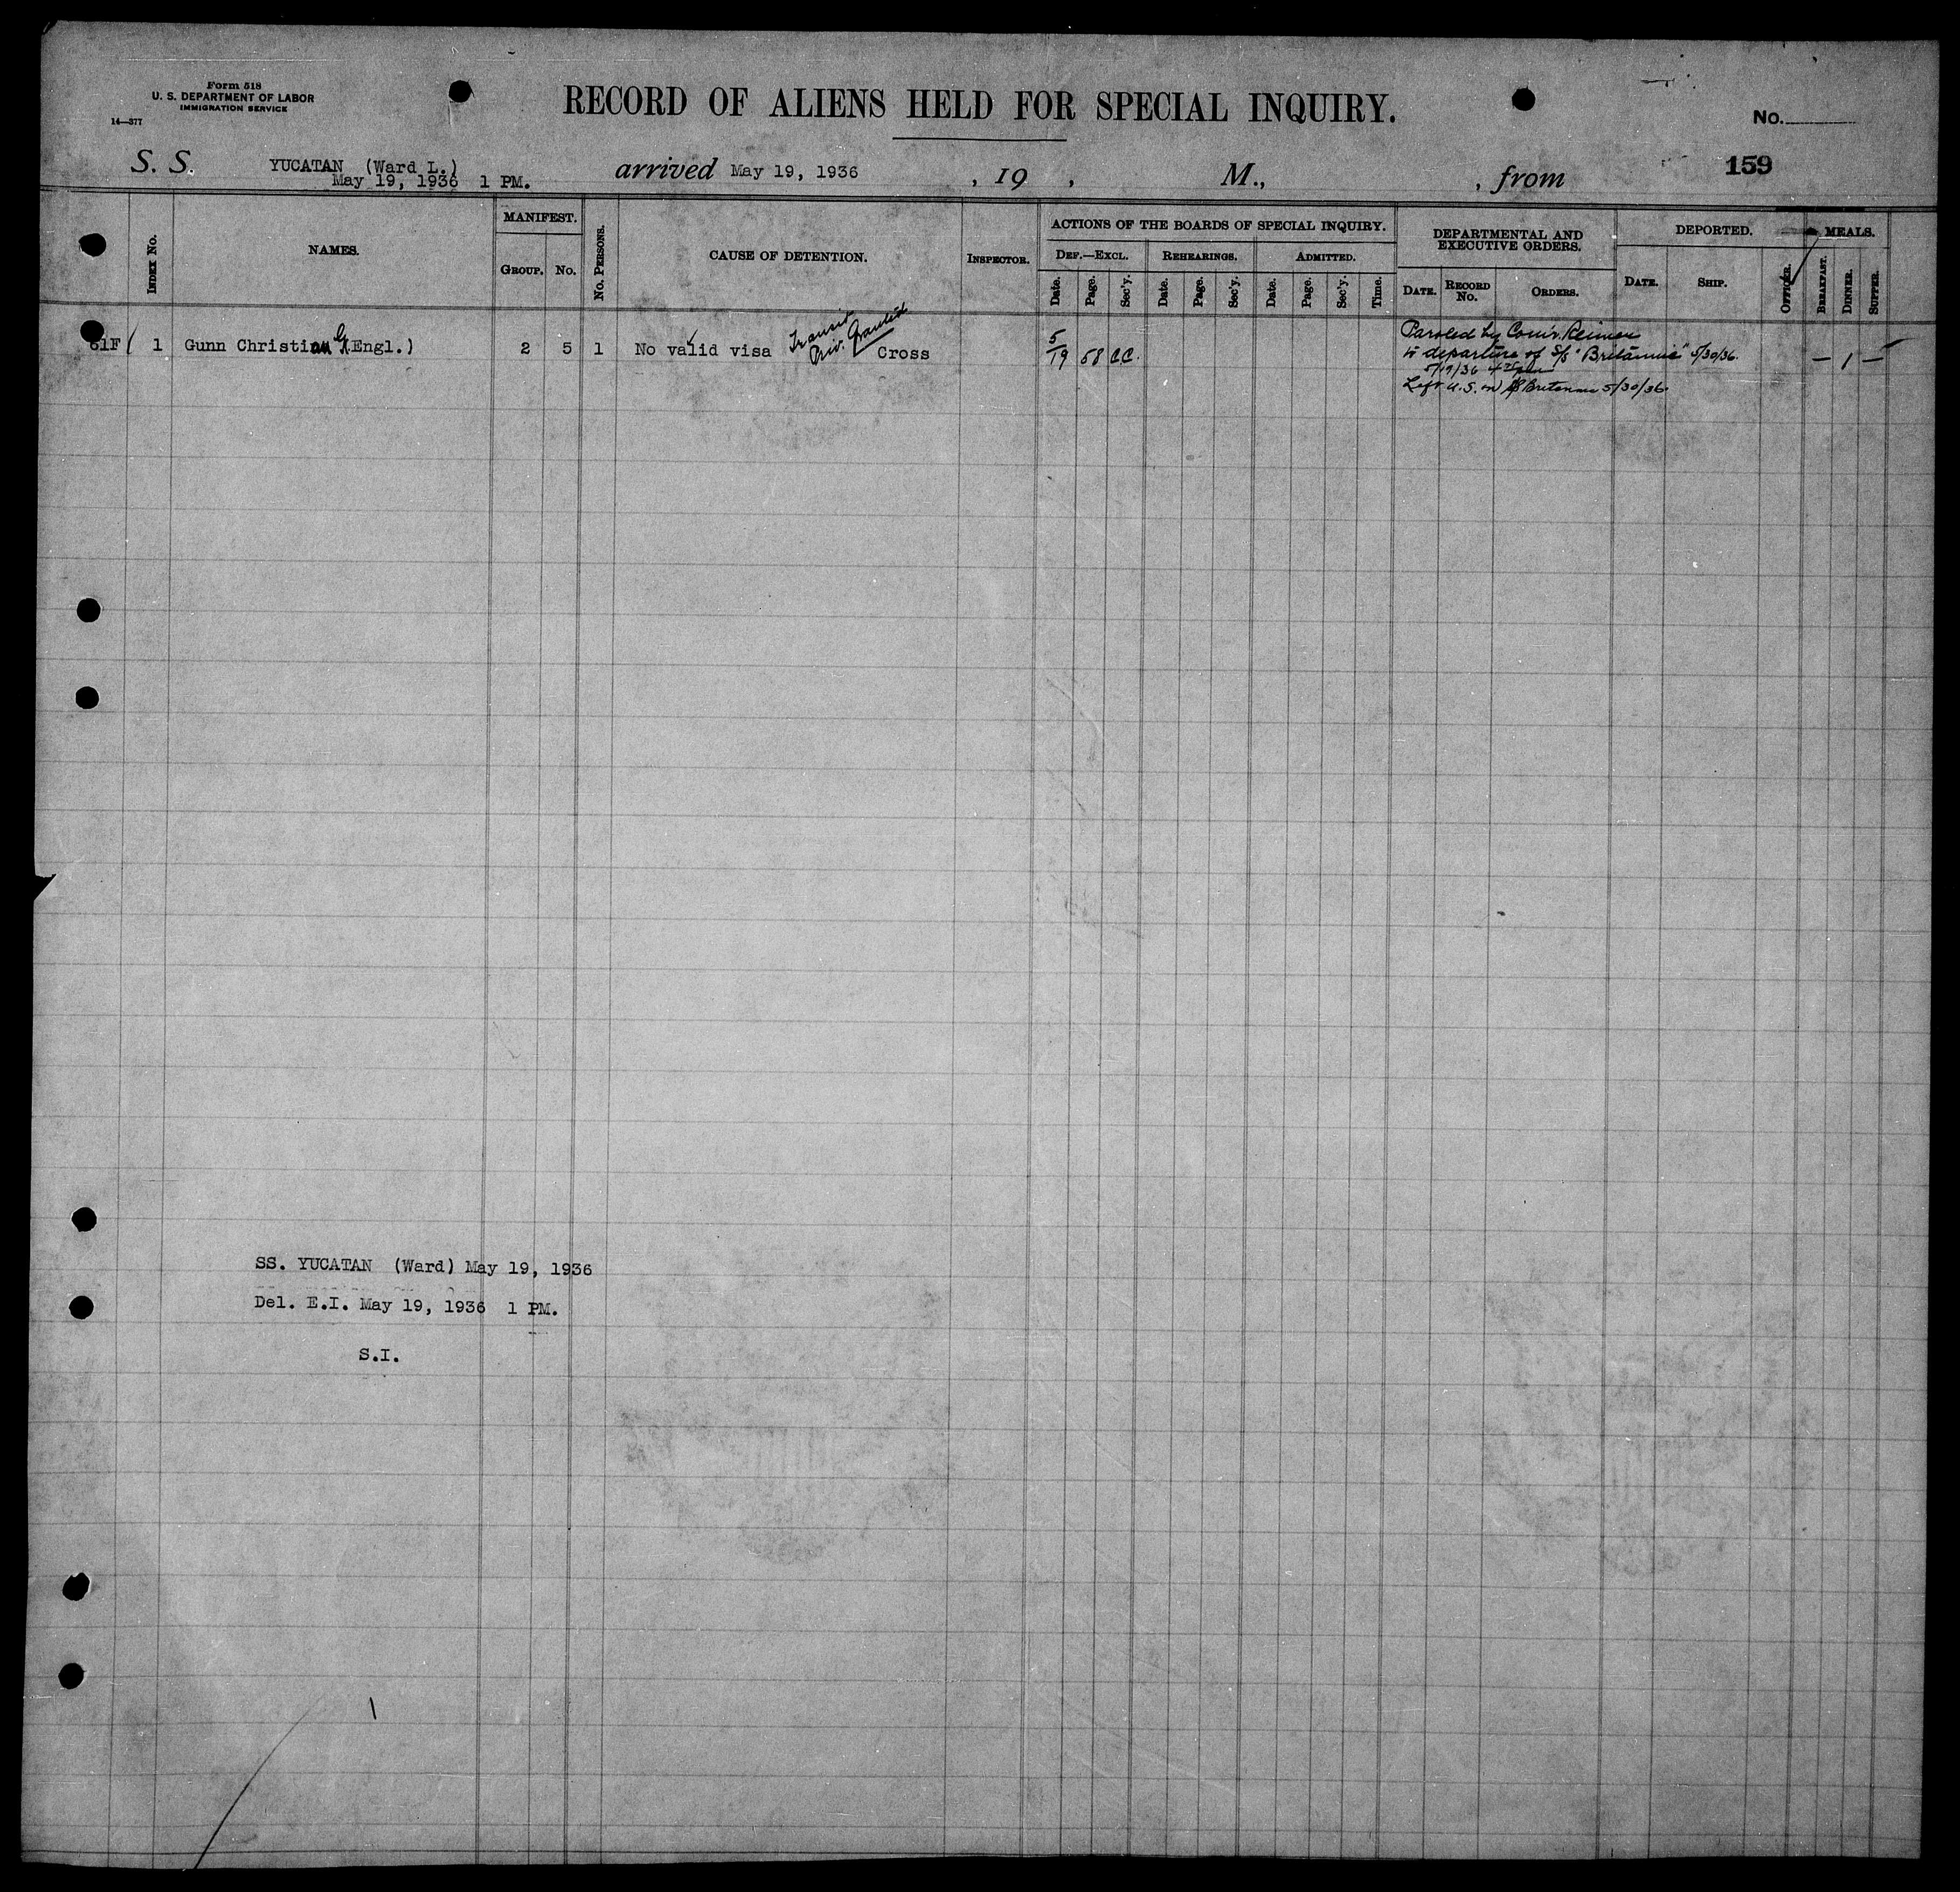 Form 518
U. S. DEPARTMENT OF LABOR
IMMIGRATION SERVICE
14—377
RECORD OF ALIENS HELD FOR SPECIAL INQUIRY.
No.
159
S. S. YUCATAN (Ward L.) arrived May 19, 1936 , 19 , M., , from
May 19, 1936 1 PM.
INDEX No.
NAMES.
MANIFEST.
GROUP. No.
No. PERSONS.
CAUSE OF DETENTION.
INSPECTOR.
ACTIONS OF THE BOARDS OF SPECIAL INQUIRY.
DEF.—EXCL. REHEARINGS. ADMITTED.
Date. Page. Sec'y. Date. Page. Sec'y. Date. Page. Sec'y. Time.
DEPARTMENTAL AND
EXECUTIVE ORDERS.
DATE. RECORD No. ORDERS.
DEPORTED.
DATE. SHIP. OFFICER.
MEALS.
BREAKFAST. DINNER. SUPPER.
61F 1 Gunn Christian G (Engl.) 2 5 1 No valid visa Cross
Transit
Priv. Granted
5/19 58 CC.
Paroled by Com'r. Reimer
to departure of S/S "Britannic" 5/30/36.
5/19/36
Left U.S. on SS Britannic 5/30/36.
— 1 —
SS. YUCATAN (Ward) May 19, 1936
Del. E.I. May 19, 1936 1 PM.
S.I.